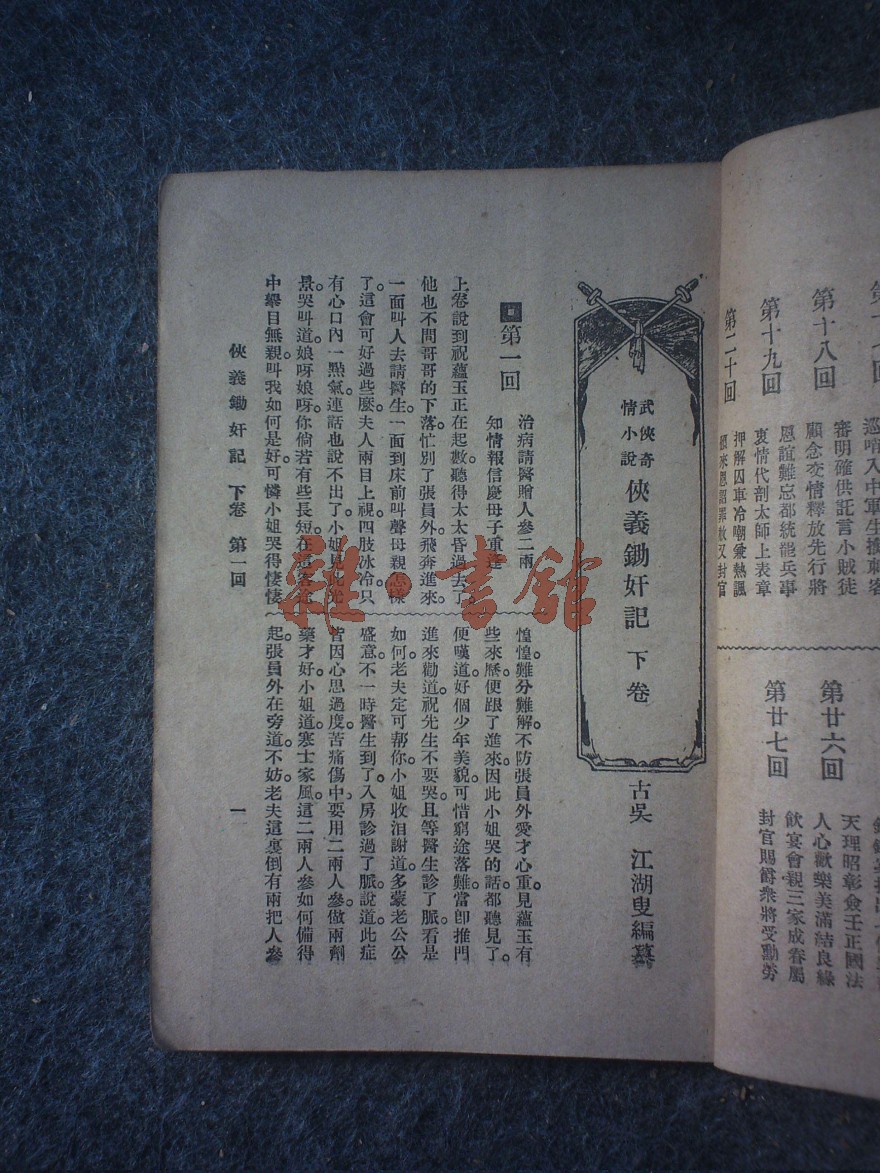 第十八回
審明確供託言小賊徒
顧念交情釋放先行將
第十九回
恩誼難忘都統罷兵事
哀情代剖太師上表章
第二十回
押解囚車冷嘲兼熱諷
第廿六回
天理昭彰僉壬正國法
人心歡樂美滿結良緣
第廿七回
飲宴會親三家成眷屬
封官賜爵衆將受勳勞
武俠奇情小說
俠義鋤奸記 下卷
古吳 江湖叟編纂
第一回
治病請醫贈人參二兩
知情報信慶母子重逢
上卷說到祝蘊玉正在起數。聽得太太昏過去了。
他也不問哥哥的下落。忙別了張員外。飛奔進來。
一面叫人去請醫生。一面到床前叫聲母親怎樣
了。這會可好過些麽。夫人兩目上視。四肢冰冷。只
有心口內一點氣。連話也說不出了。小姐見此光
景。哭叫道。娘呀娘呀。你倘若有些長短。在這客途
中舉目無親。叫我如何是好。可憐小姐哭得悽悽
惶惶。難分難解。不防張員外愛才心重。見蘊玉有
些來歷。便跟了進來。因此小姐哭的話。都聽見了。
便嘆道。好個少年美貌。可惜窮途落難。當卽推門
進來。勸道。祝先生不要哭。且等醫生診了脈。看是
如何。老夫定可帮你。小姐收泪謝道。多蒙老公公
盛意。不一時醫生到了。入房診過了脈。說道。此症
皆因心思過度。苦痛傷中。要用二兩人參。做兩劑
藥才好。小姐道。寒士家風。這二兩人參。如何備得
起。張員外在旁道。不妨。老夫這裏倒有兩把人參
俠義鋤奸記 下卷 第一回
一
雜·書館